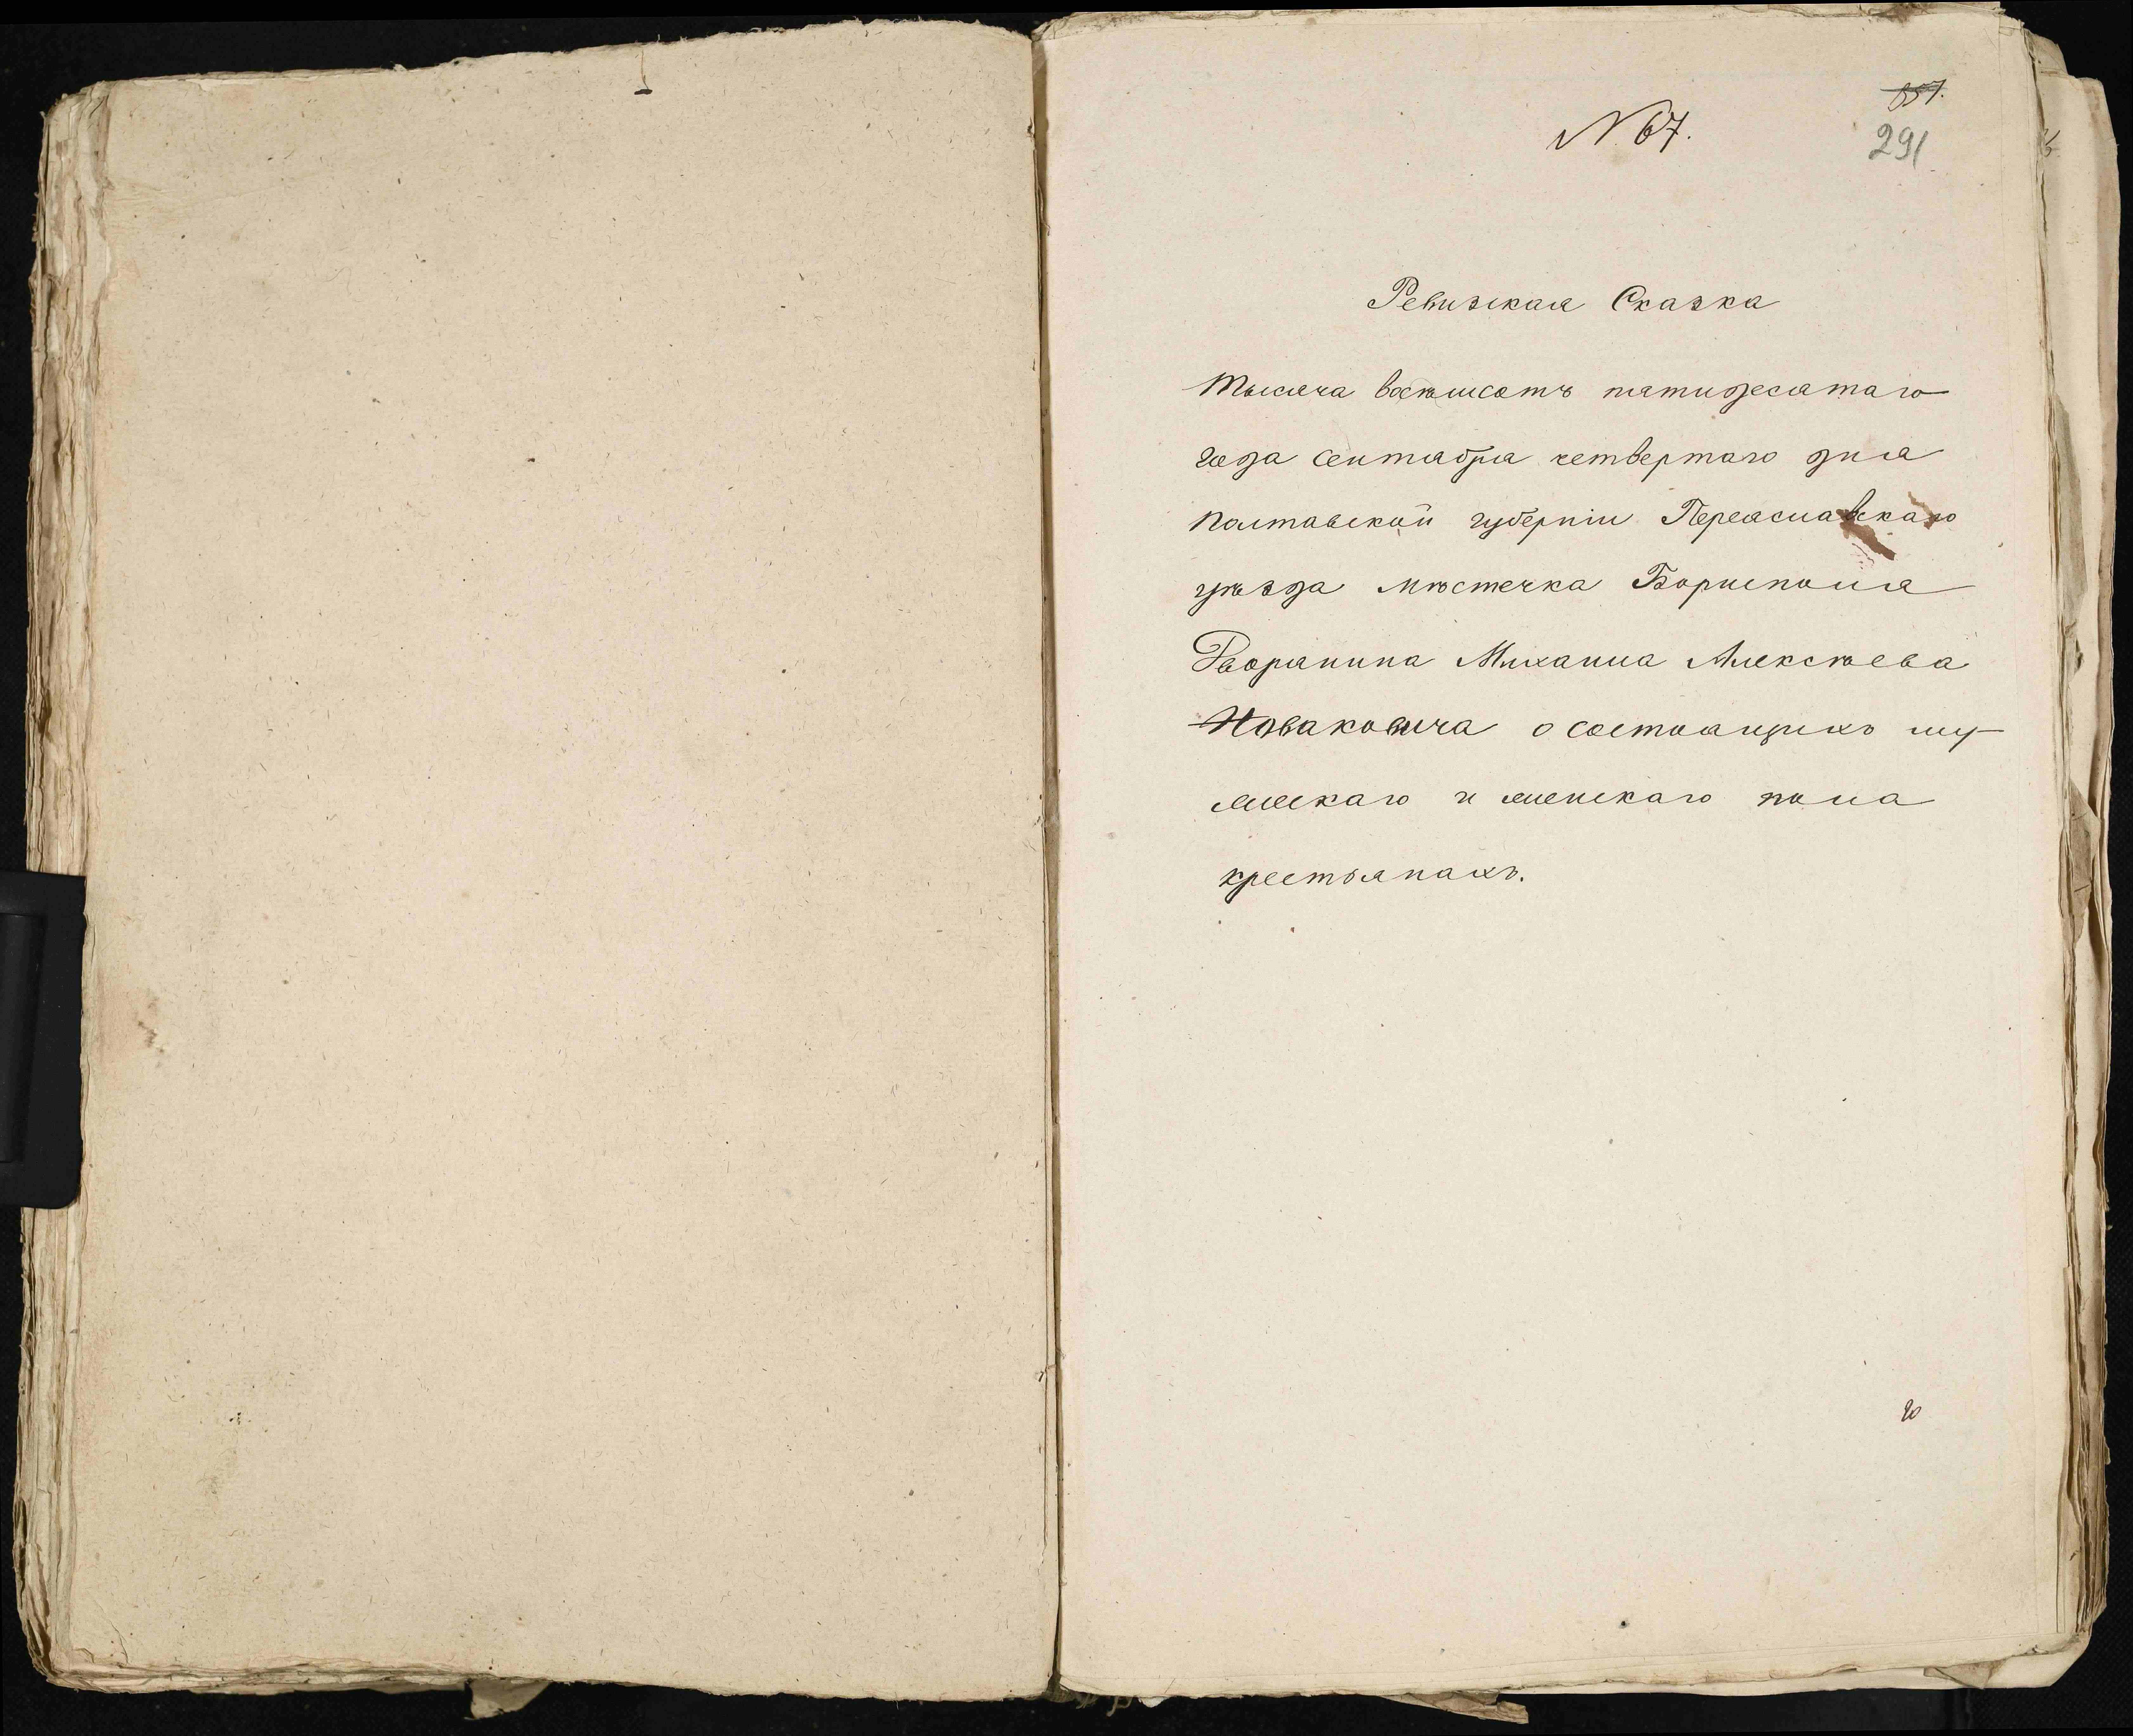 N. 67.
291
Ревизская Сказка
тысяча восемьсотъ пятидесятаго
года сентября четвертаго дня
полтавской губерніи Переяславскаго
уѣзда мѣстечка Борисполя
Дворянина Михаила Алексѣева
Новаковича о состоящихъ му-
жескаго и женскаго пола
крестьянахъ.